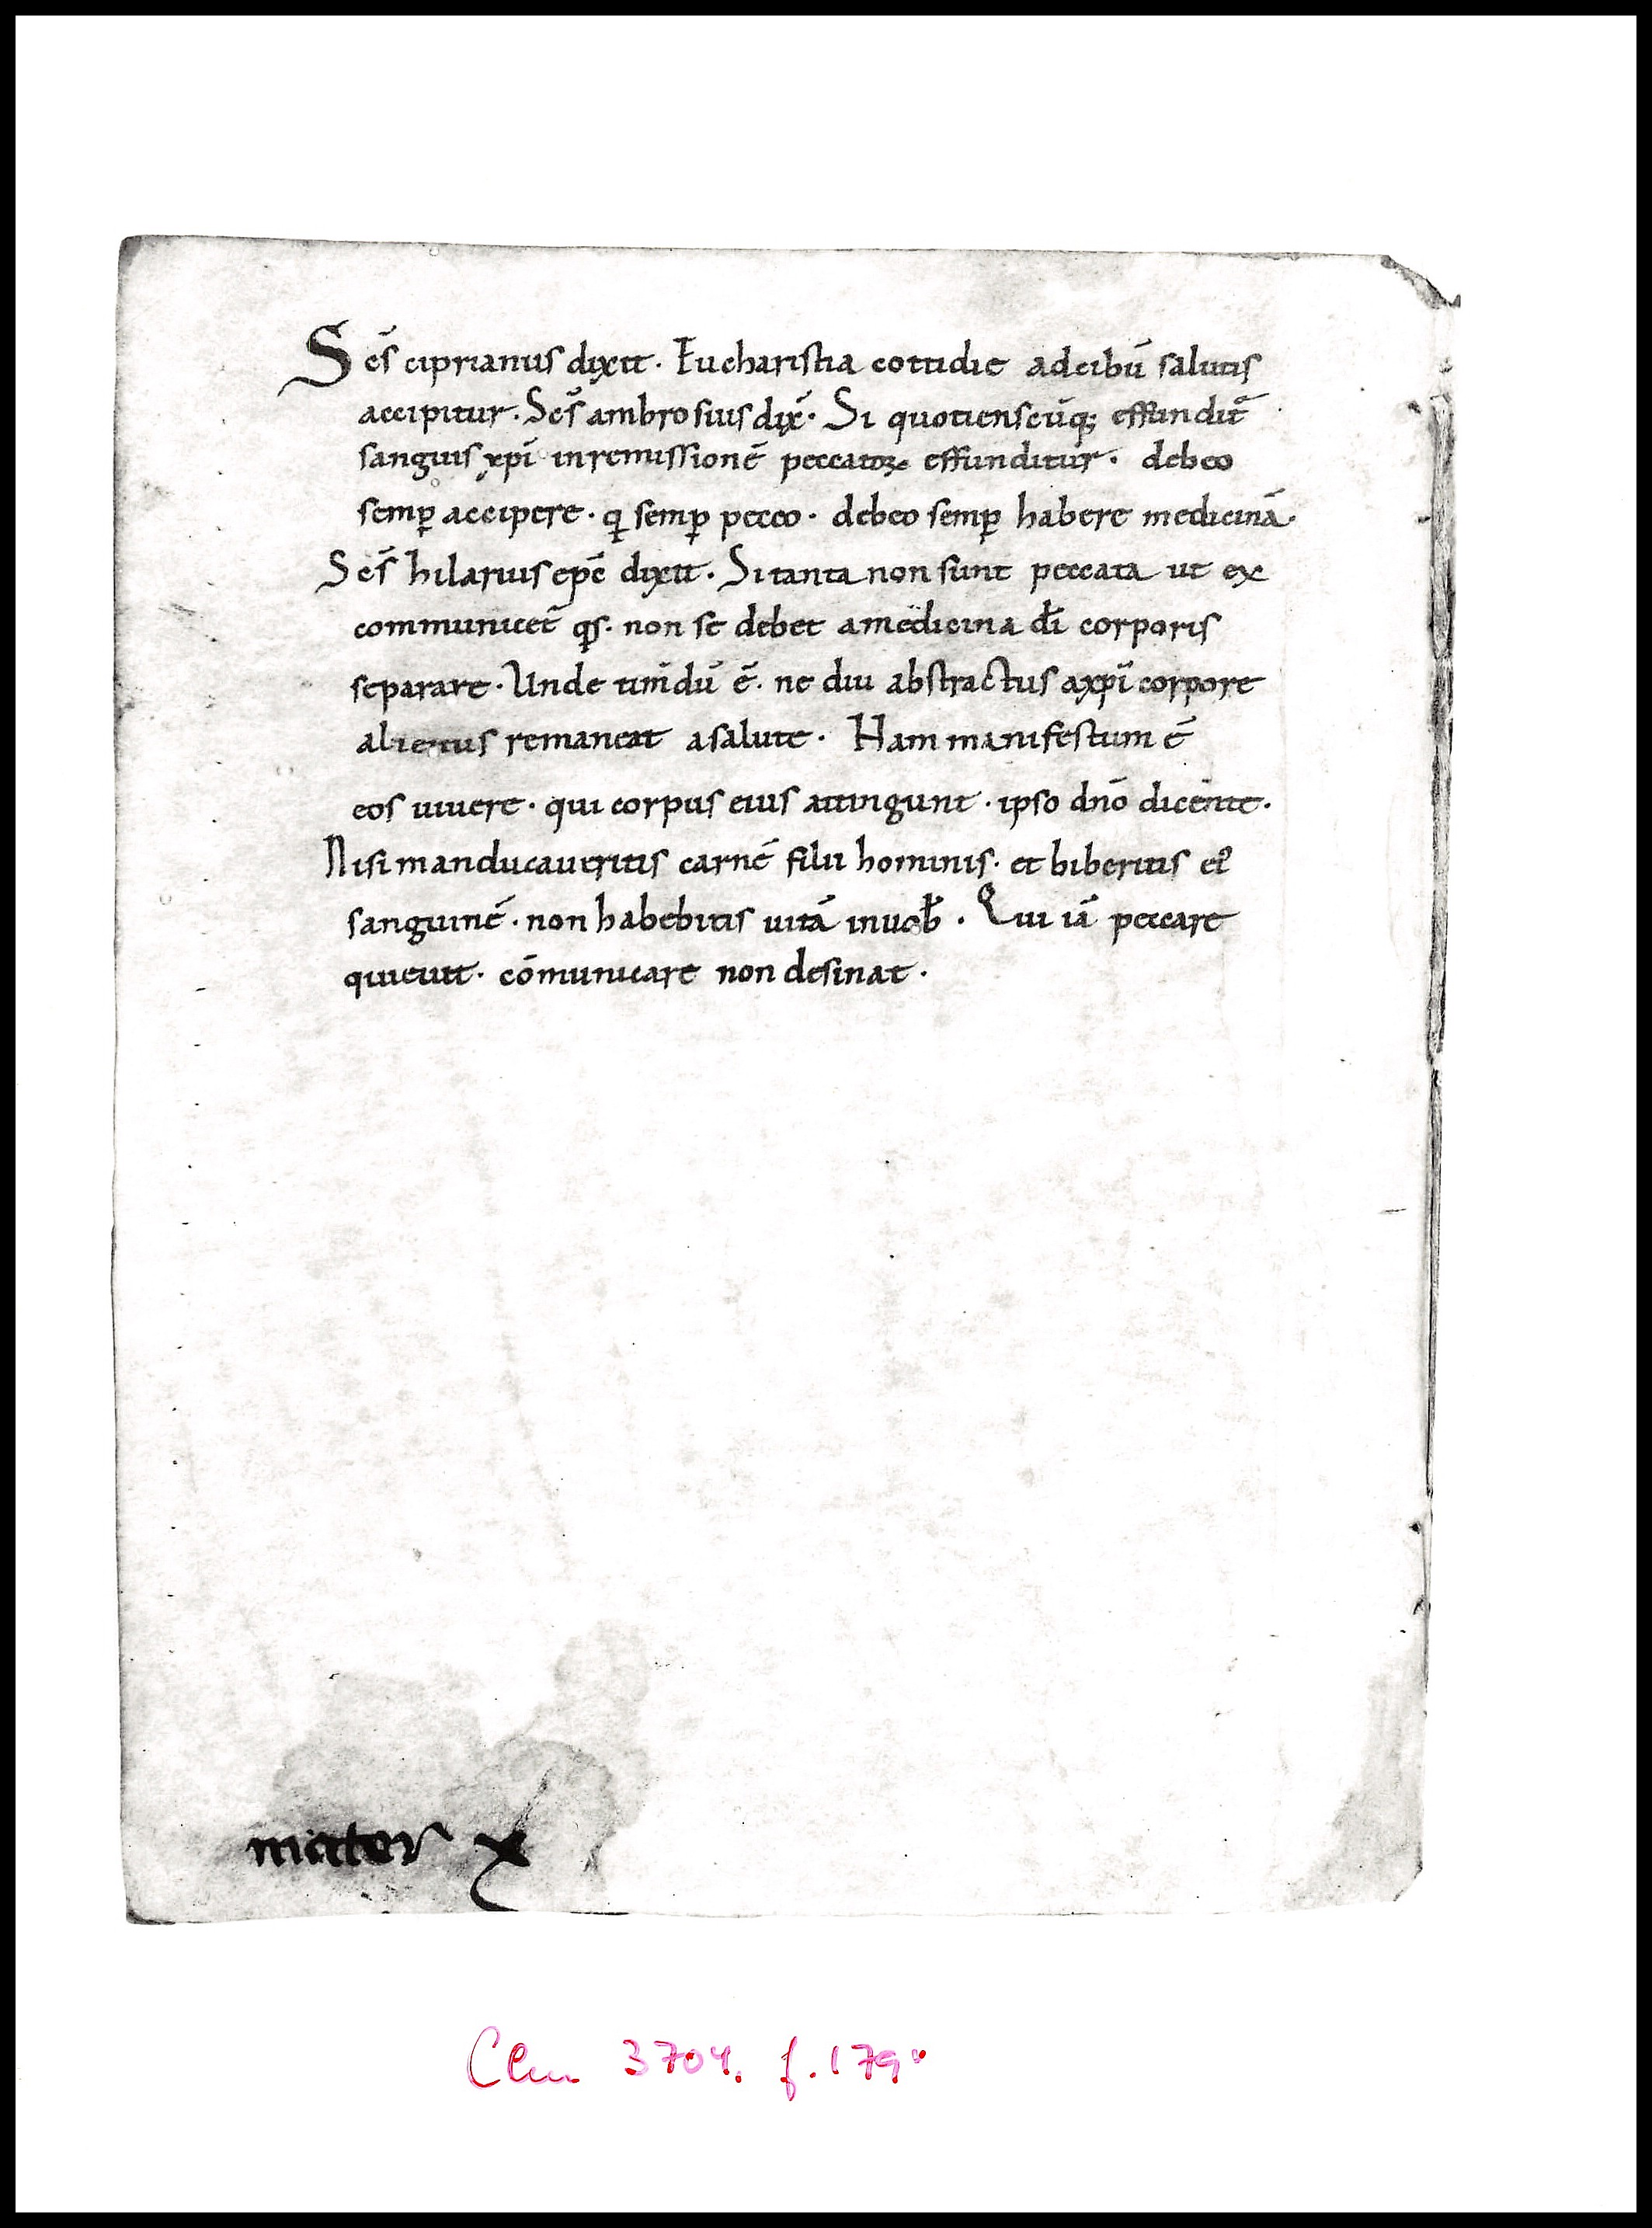 Scs̄ ciprianus dixit · Eucharistia cottidie adcibū salutis
accipitur · Scs̄ ambrosius dix̄ · Si quotienscūq; effundit̄
sanguis xp̄i inremissionē peccatoꝝ effunditur · debeo
semꝑ accipere · q̣ semꝑ pecco · debeo semꝑ habere medicinā ·
Scs̄ hilarius ep̄c dixit · Si tanta non sunt peccata ut ex
communicet̄ qs̄ · non se debet amedicina dn̄i corporis
separare · Unde timdū ē · ne diu abstractus axp̄i corpore
alienus remaneat asalute · Nam manifestum ē
eos uiuere · qui corpus eius attingunt · ipso dn̄o dicente ·
Nisi manducaueritis carnē filii hominis · et biberitis ei᾽
sanguinē · non habebitis uitā inuob̄ · Qui iā peccare
quieuit · cōmunicare non desinat ·
mater x
Clm 3704. f. 179ᵛ